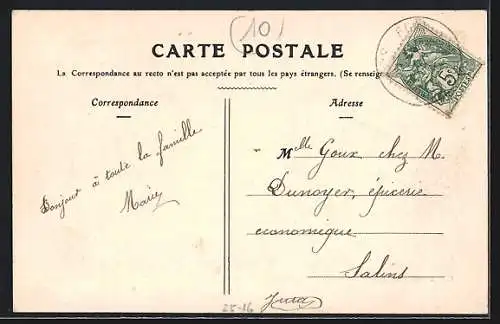 (10)
CARTE POSTALE
La Correspondance au recto n'est pas acceptée par tous les pays étrangers. (Se renseign
Correspondance
Adresse
Bonjour à toute la famille
Marie
Melle Goux chez M.
Dunoyer, épicerie
economique
Salins
Jura
25-16
5